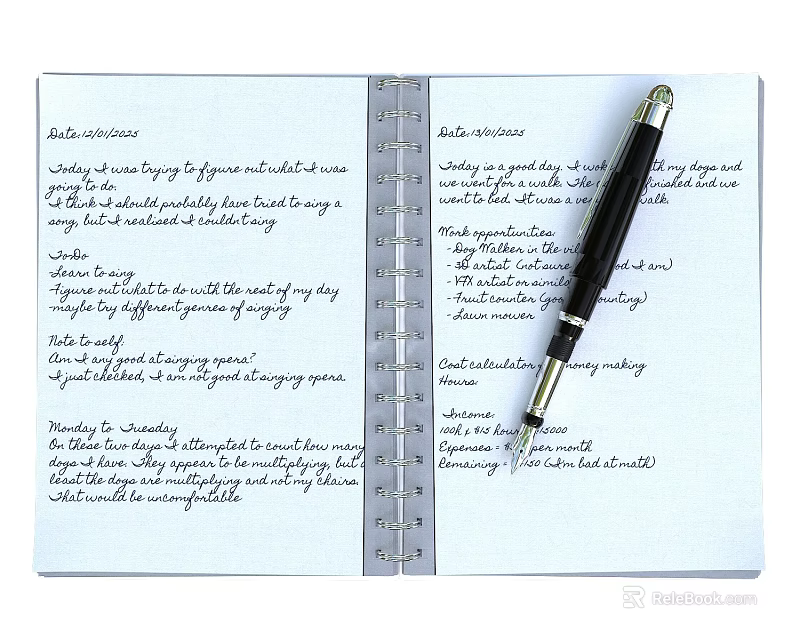 Date:12/01/2025
Today I was trying to figure out what I was
going to do.
I think I should probably have tried to sing a
song, but I realised I couldn't sing
ToDo
-Learn to sing
-Figure out what to do with the rest of my day
-maybe try different genres of singing
Note to self:
Am I any good at singing opera?
I just checked, I am not good at singing opera.
Monday to Tuesday
On these two days I attempted to count how many
dogs I have. They appear to be multiplying, but
least the dogs are multiplying and not my chairs.
That would be uncomfortable
Date:13/01/2025
Today is a good day. I my dogs and
we went for a walk. The finished and we
went to bed. It was a walk.
Work opportunities:
- Dog Walker in the
- 3D artist (not sure I am)
- VFX artist or
- Fruit counter
- Lawn mower
Cost calculator money making
Hours:
Income:
100h x $15
Expenses = per month
Remaining = (I'm bad at math)
ReleBook.com